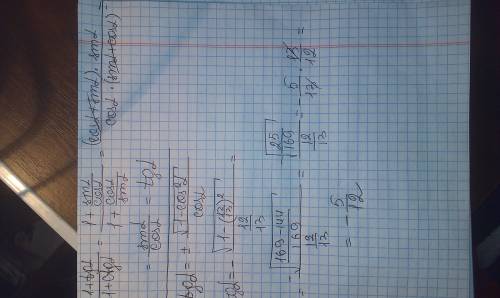 (1+tgα)/(1+ctgα) = (1 + sinα/cosα)/(1 + cosα/sinα) = ((cosα+sinα)·sinα)/(cosα·(sinα+cosα)) =
= sinα/cosα = tgα
tgα = ± √(1-cos²α)/cosα
tgα = - √(1-(12/13)²)/(12/13) =
= - √((169-144)/169)/(12/13) = √(25/169)/(12/13) = - 5/13 · 13/12 =
= - 5/12